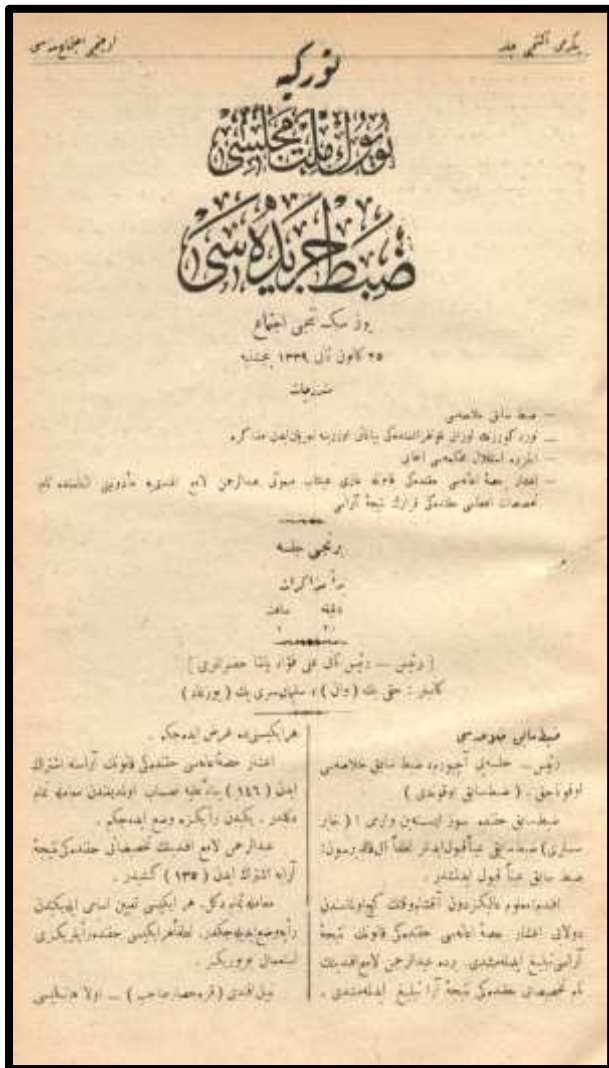 یگرمی آلتنجی جلد
توركیه
بویوك ملت مجلسی
ضبط جریده‌سی
یوز سكسنجی اجتماع
۲۵ كانون ثانی ۱۳۳۹ پنجشنبه
مندرجات
— ضبط سابق خلاصه‌سی
— لورد كورزنك لوزان قونفرانسنده‌كی بیاناتی اوزرینه
— استقلال محكمه‌سی
— اغشار حصهٔ اعانه‌سی حقنده‌كی قانونه غازی عینتاب مبعوثی عبدالرحمن لامع افندی‌یه
تخصیصات اعطاسی حقنده‌كی قرارك نتیجهٔ آراسی
برنجی جلسه
بدأ مذاكرات
دقیقه ساعت
[ رئیس — رئیس ثانی علی فؤاد پاشا حضرتلری ]
كاتبلر : حقی بك ( وان ) ،
ضبط سابق خلاصه‌سی
رئیس — جلسه‌یی آچیورم، ضبط سابق خلاصه‌سی
اوقوناجق . ( ضبط سابق اوقوندی )
ضبط سابق حقنده سوز ایسته‌ین وارمی ؟ ( خایر
سسلری ) ضبط سابقی عیناً قبول ایدنلر لطفاً ال قالدیرسون :
ضبط سابق عیناً قبول ایدلمشدر .
افندم معلوم عالیكز دون آقشام وقتك
دولایی اغشار حصهٔ اعانه‌سی حقنده‌كی قانونك نتیجهٔ
آراسی تبلیغ ایدلمه‌مشدی . برده عبدالرحمن لامع افندینك
تخصیصاتی حقنده‌كی نتیجهٔ آرا تبلیغ ایدلمه‌مشدی .
هر ایكیسنی ده عرض ایده‌جكم .
اغشار حصهٔ اعانه‌سی حقنده‌كی قانونك آراسنه اشتراك
ایدن ( ۱۴۶ ) بناءً علیه نصاب اولمدیغندن معامله تمام
دكلدر . یكیدن رأیكزه وضع ایده‌جكم .
عبدالرحمن لامع افندینك تخصیصاتی حقنده‌كی نتیجهٔ
آرایه اشتراك ایدن ( ۱۳۵ ) كشیدر .
معامله تمام دكل . هر ایكیسی تعیین اسامی ایله یكیدن
رأیه وضع ایدیله‌جكدر . لطفاً هر ایكیسی حقنده رأیلریكزی
استعمال بویوریكز .
نبیل افندی ( قره‌حصار صاحب ) — اولا